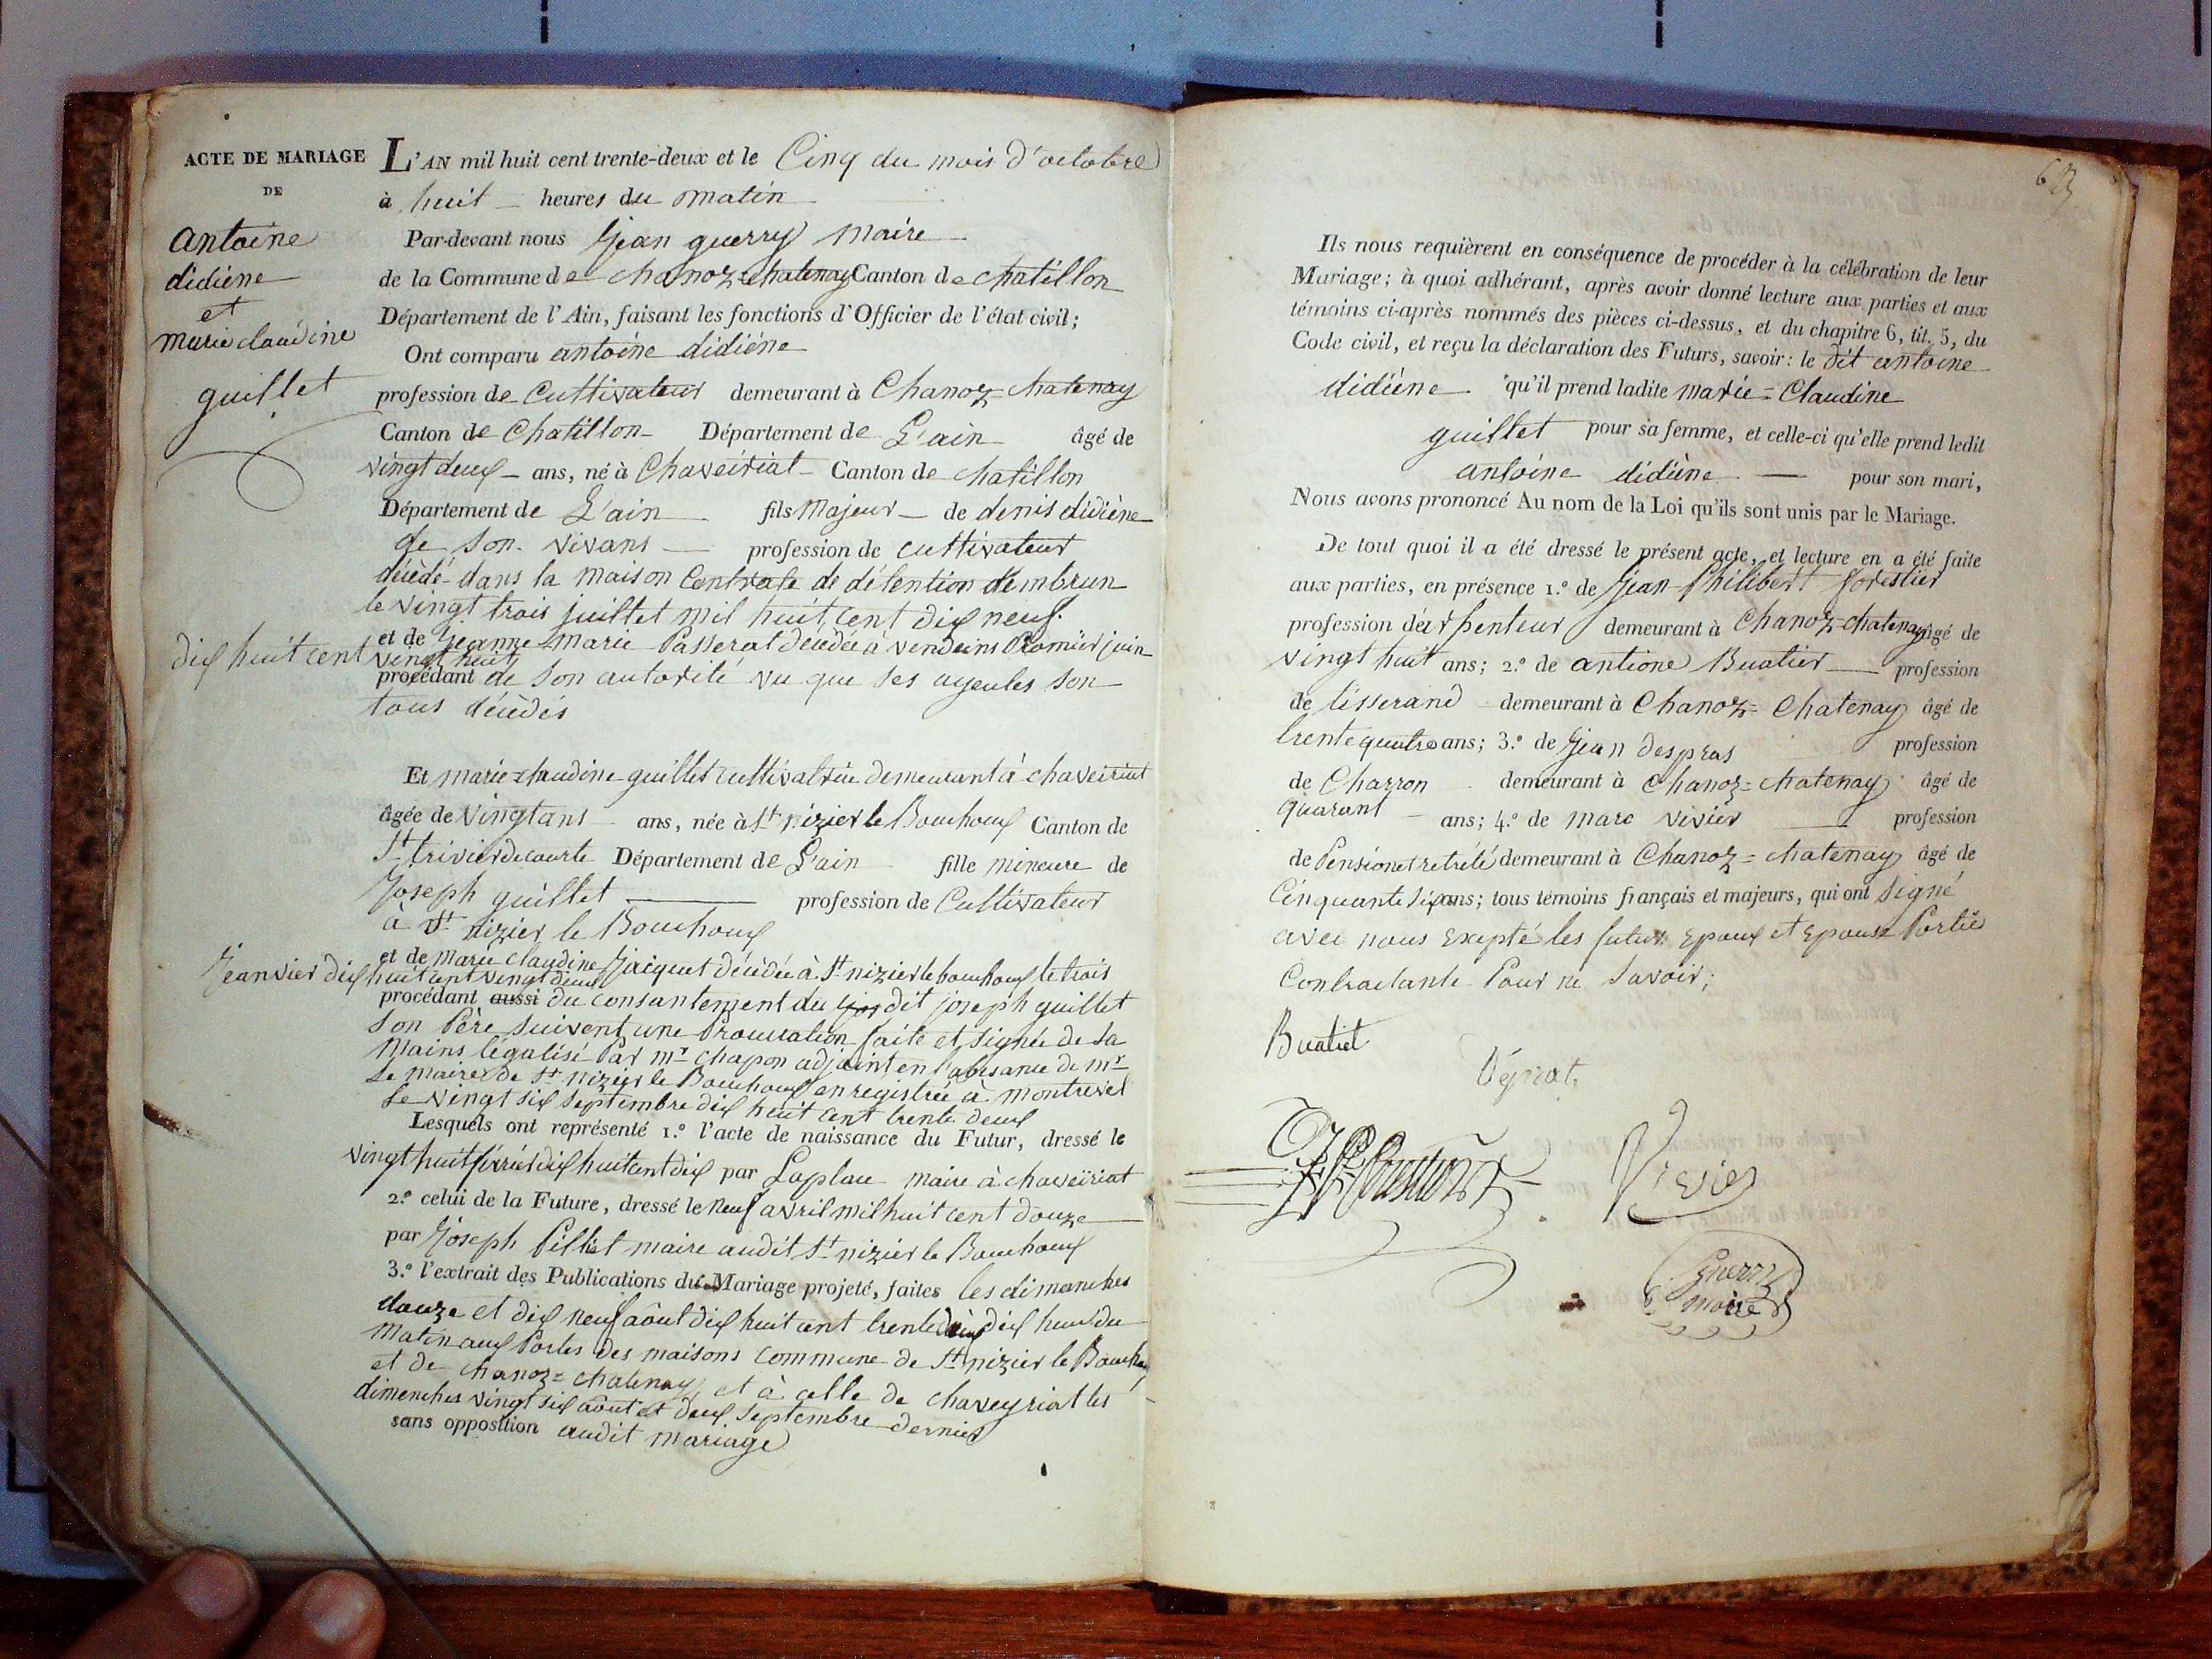 ACTE DE MARIAGE
DE
antoine
didiéne
et
marie claudine
guillet
L'AN mil huit cent trente-deux et le Cinq du mois d'octobre
à huit heures du matin
Par-devant nous Jean guerry maire
de la Commune de chanoz=chatenay Canton de chatillon
Département de l'Ain, faisant les fonctions d'Officier de l'état civil;
Ont comparu antoine didiéne
profession de Cultivateur demeurant à Chanoz=chatenay
Canton de Chatillon Département de L'ain âgé de
vingt deux ans, né à Chaveiriat Canton de chatillon
Département de L'ain fils majeur de denis didiène
de son vivans profession de cultivateur
décédé dans la maison Centrale de détention dembrun
le vingt trois juillet mil huit cent dix neuf.
et de Jeanne-marie Passerat décédée à vendeins Premier juin
dix huit cent vingt huit
procédant de son autorité vu que ses ayeules son
tous décèdés
Et marie=claudine guillet cultivatrice demeurant à chaveiriat
âgée de vingt ans ans, née à St nizier le Bouchoux Canton de
St trivier de courte Département de L'ain fille mineure de
Joseph guillet profession de Cultivateur
à St nizier le Bouchoux
et de marie claudine Jacquet décédée à St nizier le bouchoux le trois
Jeanvier dix huit cent vingt deux
procédant aussi du consantement du dit joseph guillet
son Père suivent une Procuration faite et signée de sa
mains légalisé Par mr chapon adjoint en l'absance de mr
Le maire de St nizier le Bouchoux enregistrée à montrevel
Le vingt six septembre dix huit cent trente deux
Lesquels ont représenté 1.º l'acte de naissance du Futur, dressé le
vingt huit févriér dix huit cent dix par Laplace maire à chaveiriat
2.º celui de la Future, dressé le neuf avril mil huit cent douze
par Joseph Pilliet maire audit St nizier le Bouchoux
3.º l'extrait des Publications du Mariage projeté, faites les dimanches
douze et dix neuf aôut dix huit cent trente deux dix heur du
matin aux Portes des maisons commune de St nizier le Boucho
et de chanoz=chatenay, et à celle de chaveyriat les
dimenches vingt six aôut et deux septembre dernier
sans opposition audit mariage
63
Ils nous requièrent en conséquence de procéder à la célébration de leur
Mariage; à quoi adhérant, après avoir donné lecture aux parties et aux
témoins ci-après nommés des pièces ci-dessus, et du chapitre 6, tit. 5, du
Code civil, et reçu la déclaration des Futurs, savoir: le dit antoine
didiène qu'il prend ladite marie=Claudine
guillet pour sa femme, et celle-ci qu'elle prend ledit
antoine didiène pour son mari,
Nous avons prononcé Au nom de la Loi qu'ils sont unis par le Mariage.
De tout quoi il a été dressé le présent acte, et lecture en a été faite
aux parties, en présence 1.º de Jean-Philibert forestier
profession d'arpenteur demeurant à Chanoz-chatenay âgé de
vingt huit ans; 2.º de antione Buatier profession
de tisserand demeurant à Chanoz=Chatenay âgé de
trente quatre ans; 3.º de Jean despras profession
de Charron demeurant à Chanoz=chatenay âgé de
quarant ans; 4.º de marc vivier profession
de Pensionet retrété demeurant à Chanoz=chatenay âgé de
Cinquante six ans; tous témoins français et majeurs, qui ont signé
avec nous exepté les futur Epoux et Epouse Partie
Contractante Pour ne savoir;
Buatiet
Vivier
guerry
maire